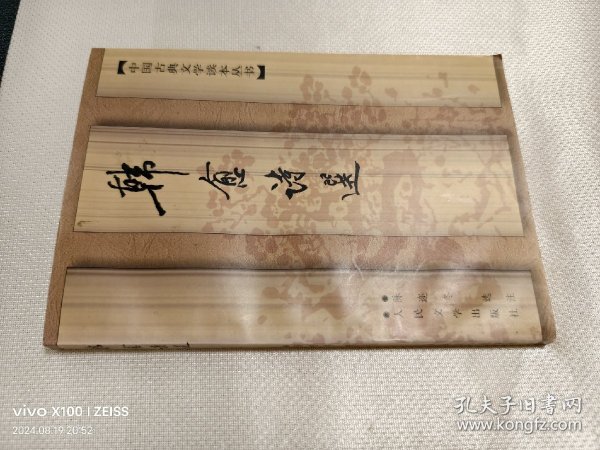 【中国古典文学读本丛书】
韩愈诗選
●陈迩冬 选注
●人民文学出版社
vivo X100 | ZEISS
2024.08.19 20:52
孔夫子旧书网
www.kongfz.com